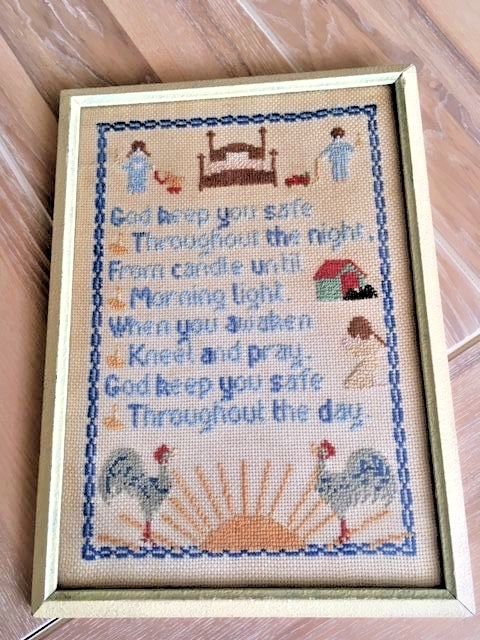 God keep you safe
Throughout the night.
From candle until
Morning light.
When you awaken
Kneel and pray.
God keep you safe
Throughout the day.